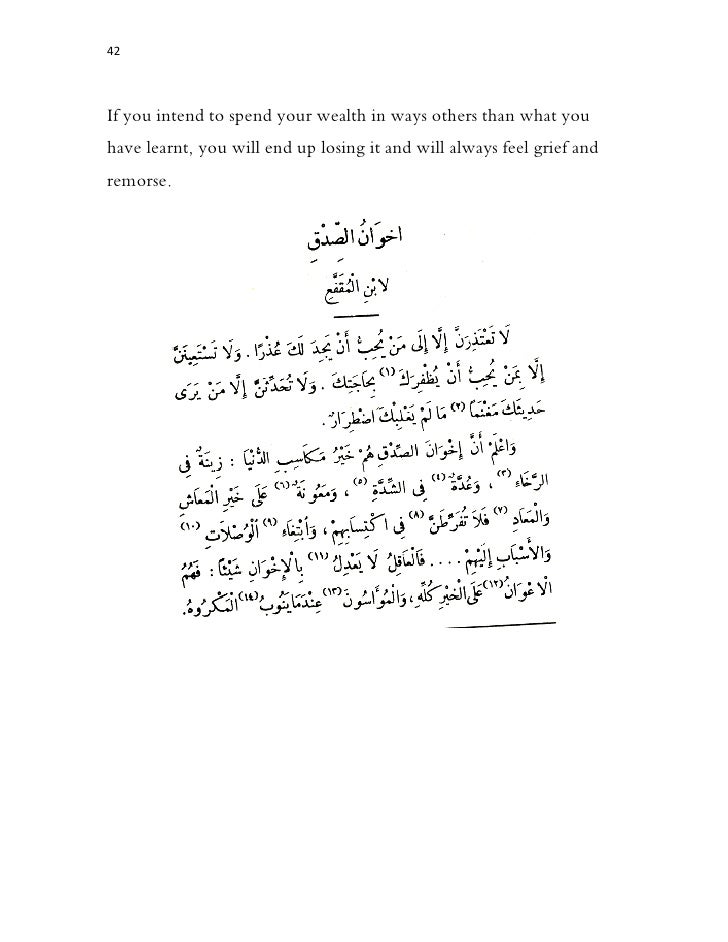 42
If you intend to spend your wealth in ways others than what you
have learnt, you will end up losing it and will always feel grief and
remorse.
اخوَانُ الصِّدْقِ
لابْنِ الْمُقَفَّعِ
لَا تَعْتَذِرَنَّ إِلَّا إِلَى مَنْ يُحِبُّ أَنْ يَجِدَ لَكَ عُذْرًا . وَلَا تَسْتَعِينَنَّ
إِلَّا بِمَنْ يُحِبُّ أَنْ يُظْفِرَكَ (١) بِحَاجَتِكَ . وَلَا تُحَدِّثَنَّ إِلَّا مَنْ يَرَى
حَدِيثَكَ مَغْنَمًا (٢) مَا لَمْ يَغْلِبْكَ اضْطِرَارٌ.
وَاعْلَمْ أَنَّ إِخْوَانَ الصِّدْقِ هُمْ خَيْرُ مَكَاسِبِ الدُّنْيَا : زِينَةٌ فِى
الرَّخَاءِ (٣) ، وَعُدَّةٌ (٤) فِى الشِّدَّةِ (٥) ، وَمَعُونَةٌ (٦) عَلَى خَيْرِ الْمَعَاشِ
وَالْمَعَادِ (٧) فَلَا تُفَرِّطَنَّ (٨) فِى اكْتِسَابِهِمْ ، وَابْتِغَاءِ (٩) الْوُصْلَاتِ (١٠)
وَالْأَسْبَابِ إِلَيْهِمْ .... فَالْعَاقِلُ لَا يَعْدِلُ (١١) بِالْإِخْوَانِ شَيْئًا : فَهُمُ
الْاعْوَانُ (١٢) عَلَى الْخَيْرِ كُلِّهِ، وَالْمُوَاسُونَ (١٣) عِنْدَمَا يَنُوبُ (١٤) الْمَكْرُوهُ.